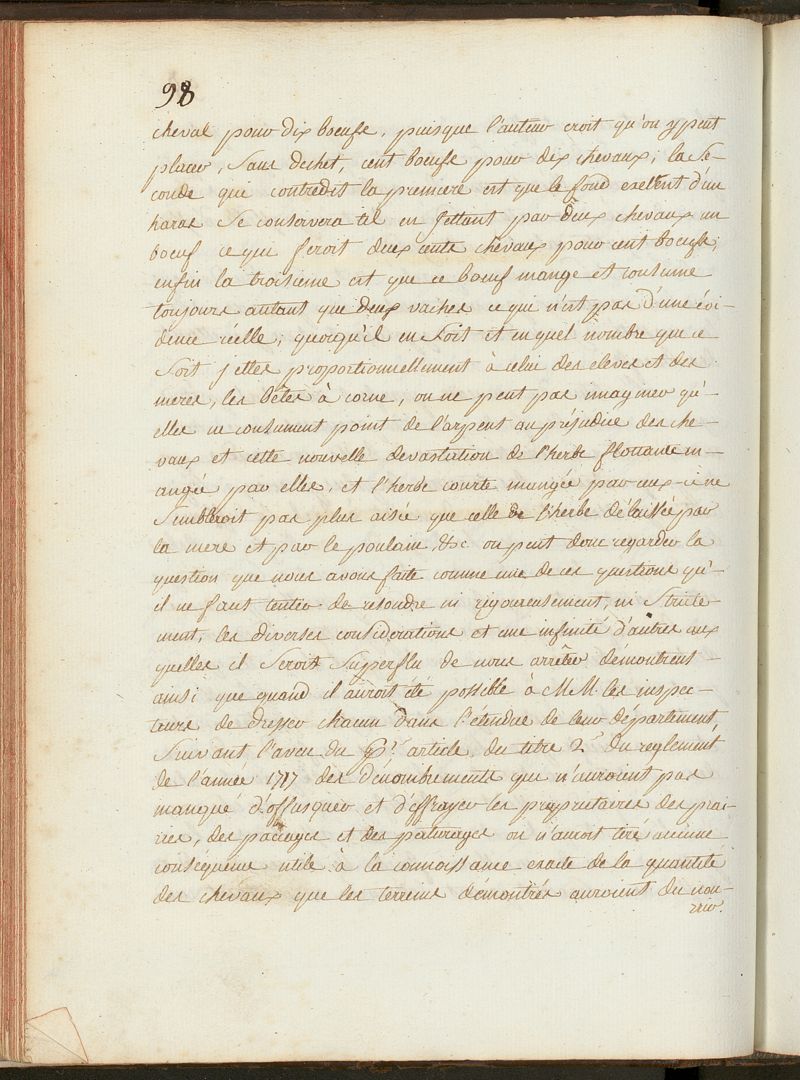 98
cheval pour dix boeufs, puisque l'auteur croit qu'on y peut
placer, sans dechet, cent boeufs pour dix chevaux; la se-
conde qui contredit la premiere est que le fond exellent d'un
haras se conservera til en jettant par deux chevaux un
boeuf ce qui feroit deux cents chevaux pour cent boeufs;
enfin la troisieme est que ce boeuf mange et consume
toujours autant que deux vaches ce qui n'est pas d'une évi-
dence réelle; quoiqu'il en soit et en quel nombre que ce
soit jettes proportionnellement à celui des eleves et des
meres, les bêtes à corne, on ne peut pas imaginer qu'-
elles ne consument point de l'arpent au préjudice des che-
vaux et cette nouvelle devastation de l'herbe flottante m-
angée par elles, et l'herbe courte mangée par ceux-ci ne
sembleroit pas plus aisée que celle de l'herbe délaissée par
la mere et par le poulain, &c on peut donc regarder la
question que nous avons faite comme une de ces questions qu'-
il ne faut tenter de resoudre ni rigoureusement, ni stricte-
ment, les diverses considerations et une infinité d'autres aux
quelles il seroit superflu de nous arrêter démontrent-
ainsi que quand il auroit été possible à MM. les inspec-
teurs de dresser chacun dans l'étendue de leur département,
suivant l'aveu du pr. article du titre 2e du reglement
de l'année 1717 des dénombrements qui n'auroient pas
manqué d'offusquer et d'effrayer les proprietaires des prai-
ries, des pacages et des paturages on n'auroit tiré aucune
conséquence utile à la connoissance exacte de la quantité
des chevaux que les terreins démontrés auroient du nou-
rrir.